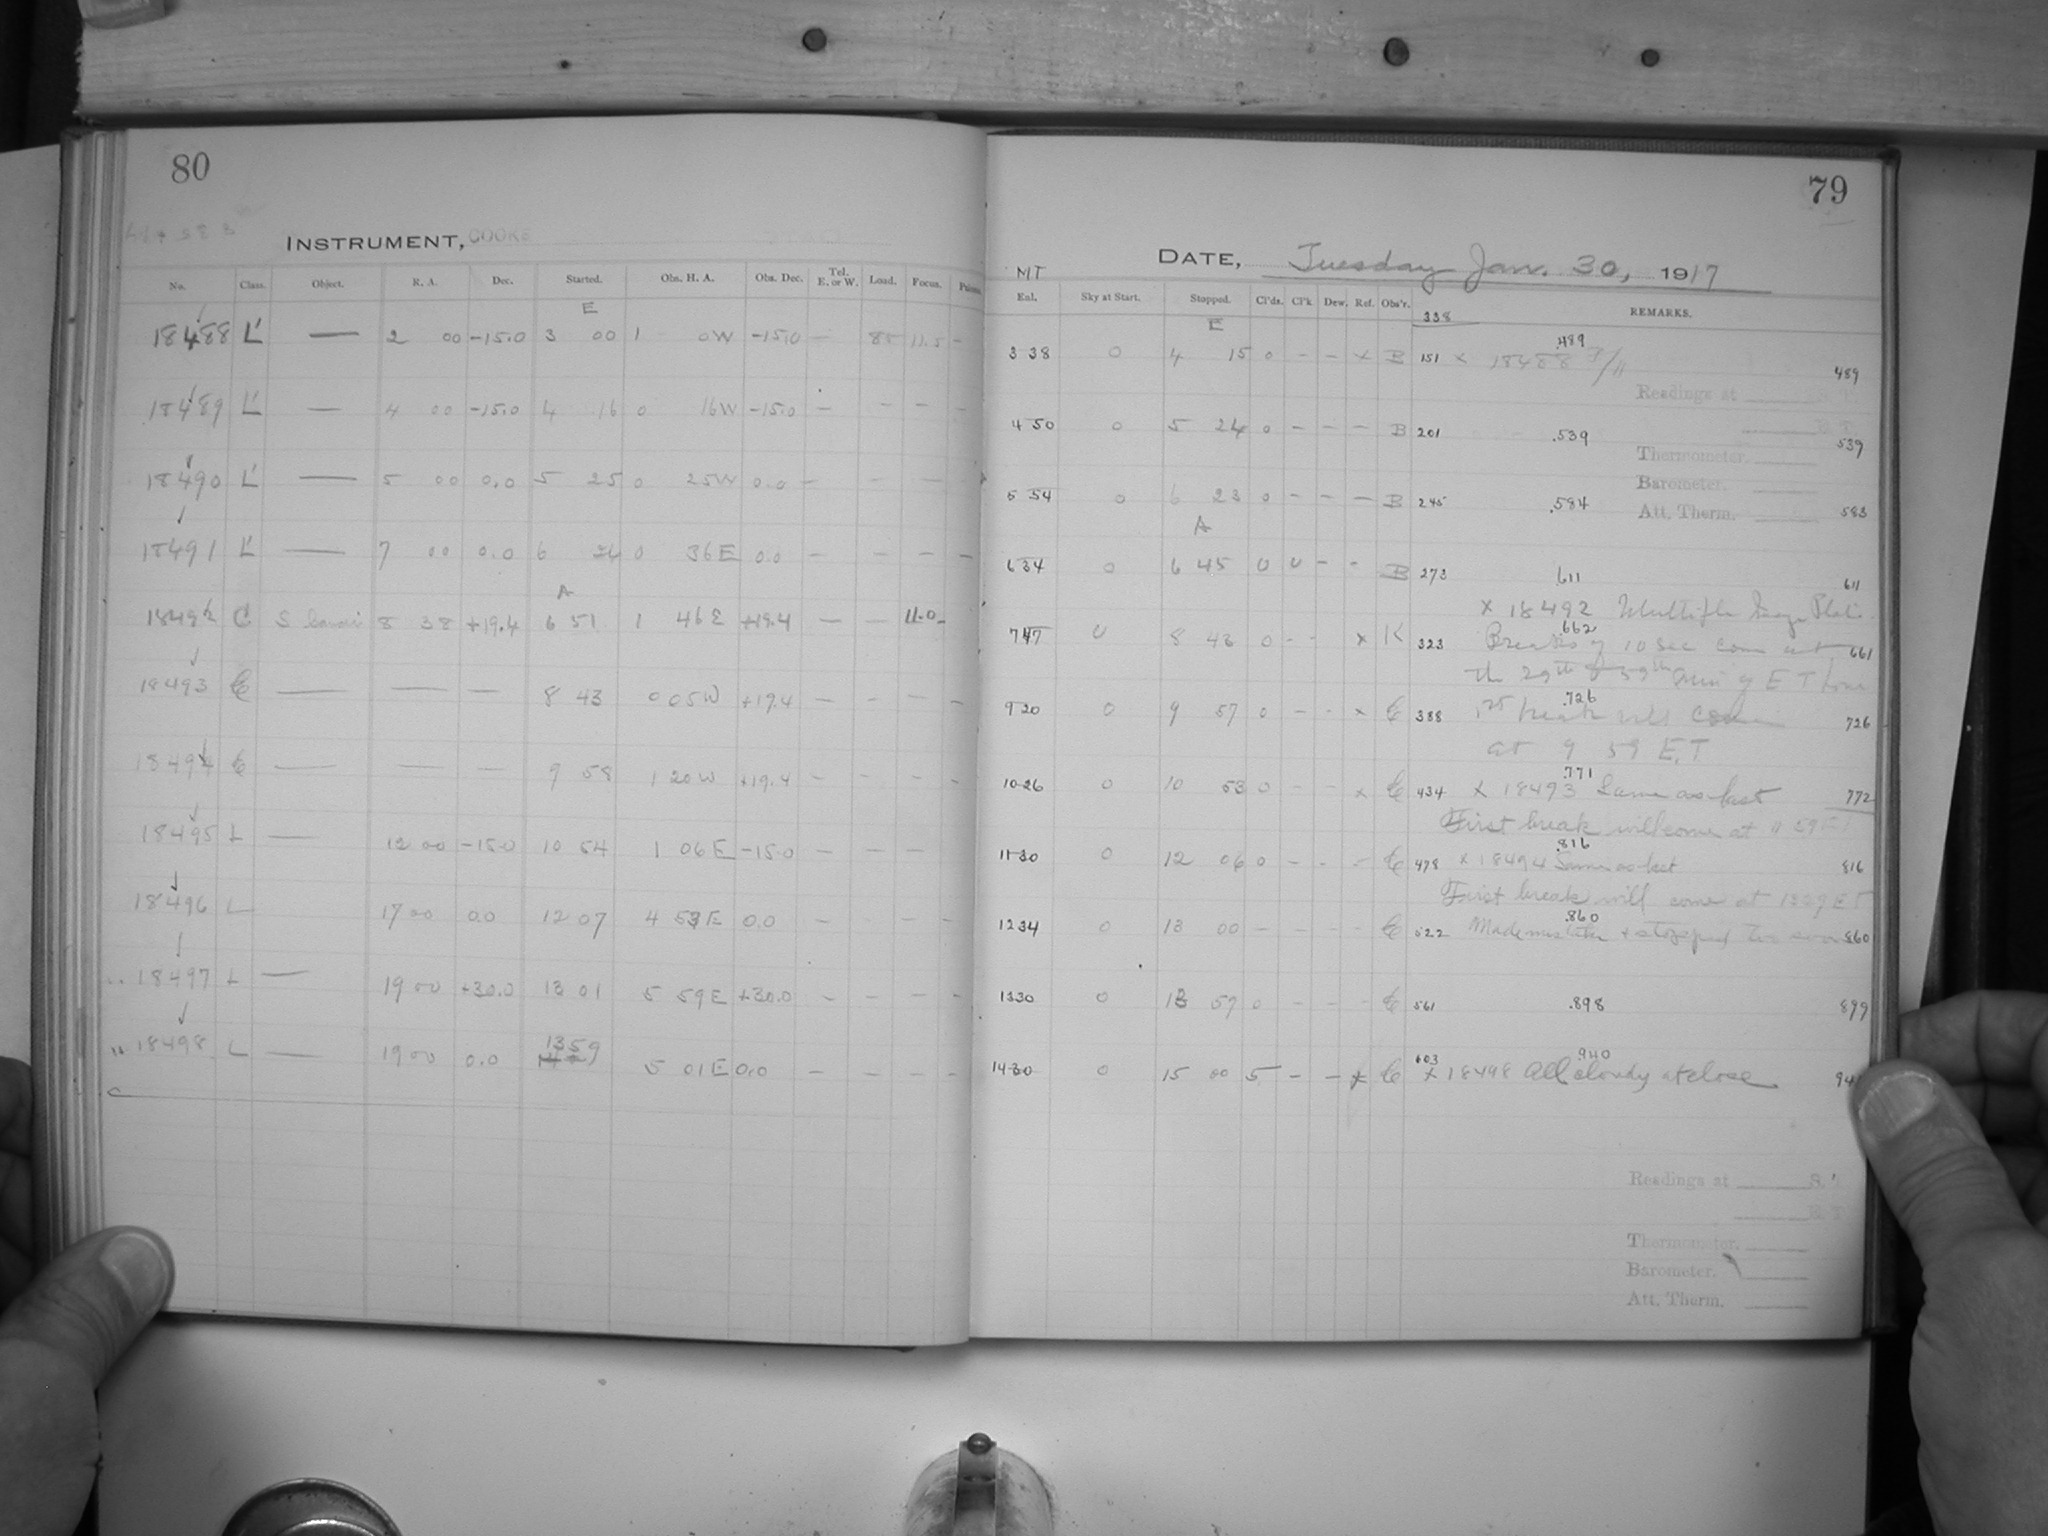 80
INSTRUMENT, COOKE
No. Class. Object. R. A. Dec. Started. Obs. H. A. Obs. Dec. Tel. E. or W. Load. Focus.
E
18488 L' — 2 00 -15.0 3 00 1 0W -15.0 — 85 11.5 -
18489 L' — 4 00 -15.0 4 16 0 16W -15.0 — - - -
18490 L' — 5 00 0.0 5 25 0 25W 0.0 — - - -
18491 L' — 7 00 0.0 6 24 0 36E 0.0 — - - -
A
18492 C 8 38 +19.4 6 51 1 46E +19.4 — — 11.0 -
18493 C — — — 8 43 0 05W +19.4 - - - -
18494 C — — — 9 58 1 20W +19.4 - - - -
18495 L — 12 00 -15.0 10 54 1 06E -15.0 - - -
18496 L 17 00 0.0 12 07 4 53E 0.0 - - -
18497 L — 19 00 +30.0 13 01 5 59E +30.0 - - - -
18498 L — 19 00 0.0 1359 5 01E 0.0 - - - -
79
DATE, Tuesday Jan. 30, 1917
MT
Enl. Sky at Start. Stopped. Cl'ds. Cl'k Dew. Ref. Obs'r. 338 REMARKS.
E
3 38 0 4 15 0 - - x B 151 x 18488 .489 489
Readings at S. T.
4 50 0 5 24 0 - - - B 201 .539 539
Thermometer.
Barometer.
5 54 0 6 23 0 - - - B 245 .584 583
Att. Therm.
A
6 34 0 6 45 0 0 - - B 273 .611 611
x 18492 Multiple
7 47 0 8 0 - - x K 323 Breaks of 10 sec come at .662 661
the 29th & 59th min of E T
9 20 0 9 57 0 - - x C 388 1st break will come .726 726
at 9 59 E.T
10 26 0 10 53 0 - - x C 434 x 18493 Same as last .771 772
First break will come at 11 59 ET
11 30 0 12 06 0 - - - C 478 x 18494 Same as last .816 816
First break will come at 1329 ET
12 34 0 13 00 - - - - C 522 Made mistake & stopped too soon .860 860
13 30 0 13 59 0 - - - C 561 .898 899
14 30 0 15 00 5 - - x C 603 x 18498 All cloudy at close .940
Readings at S. T.
E. T.
Thermometer.
Barometer.
Att. Therm.